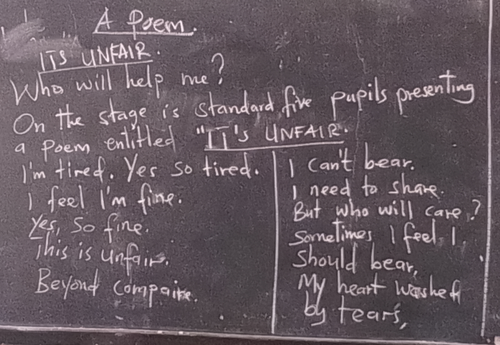 A Poem.
ITS UNFAIR.
Who will help me?
On the stage is standard five pupils presenting
a poem entitled "IT's UNFAIR.
I'm tired. Yes so tired.
I feel I'm fine.
Yes, So fine.
This is unfair.
Beyond compaire.
I can't bear.
I need to share.
But who will care?
Sometimes I feel I
Should bear,
My heart washed
by tears,